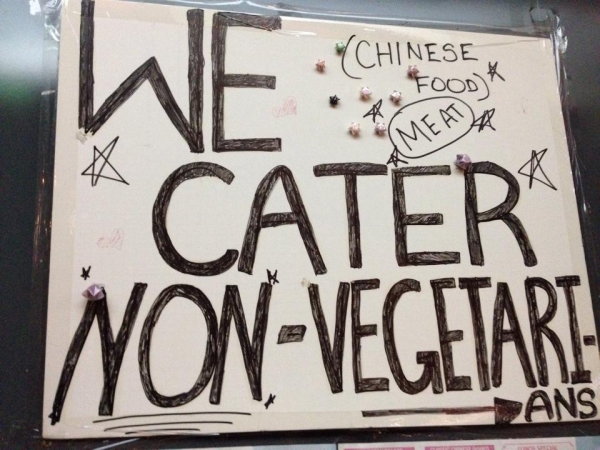 WE
(CHINESE
FOOD)
MEAT
CATER
NON-VEGETARI-
ANS